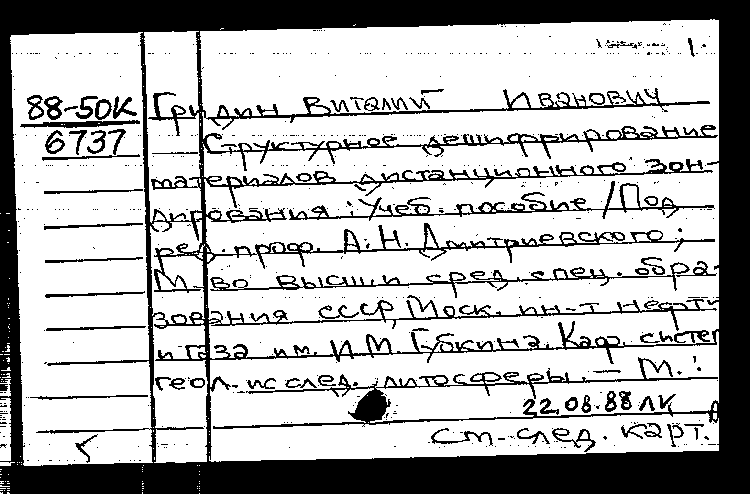 1.
88-50К Гридин, Виталий Иванович
6737 Структурное дешифрирование
материалов дистанционного зон-
дирования: Учеб. пособие / Под
ред. проф. А. Н. Дмитриевского;
М-во высш. и сред. спец. обра-
зования СССР, Моск. ин-т нефти
и газа им. И.М. Губкина. Каф. систем
геол. исслед. литосферы. — М. :
22.08.88 ЛК
См. след. карт.